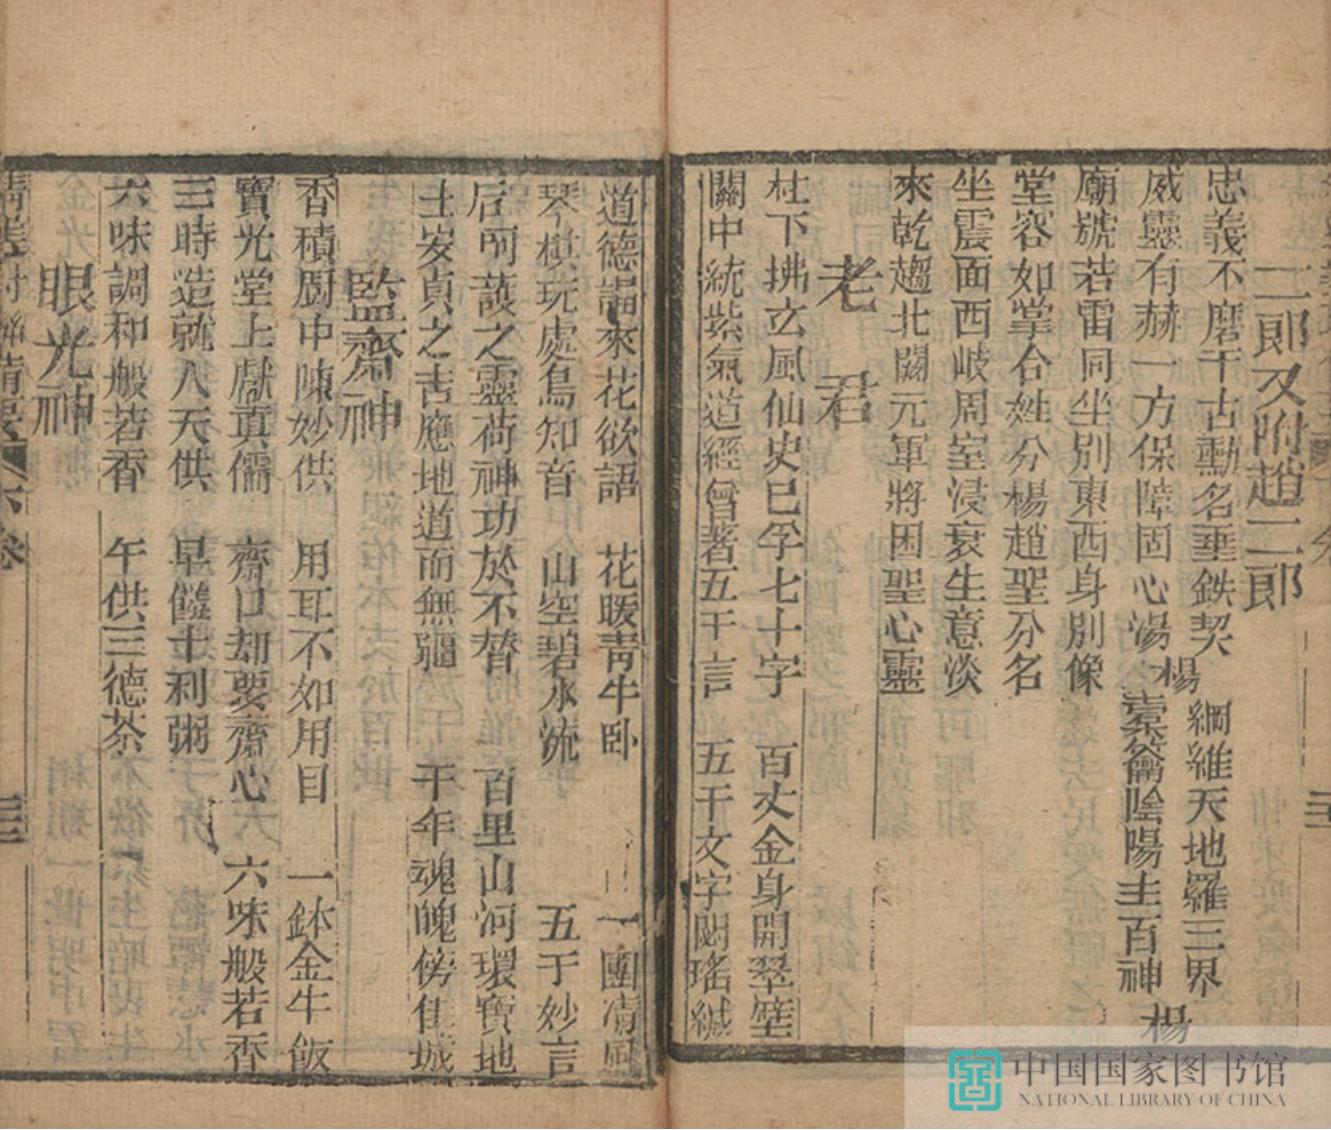 二郎又附趙二郎
忠義不磨千古勳名垂鉄契 綱維天地羅三界
威靈有赫一方保障固心湯 楊 橐籥陰陽主百神 楊
廟號若雷同坐別東西身別像
堂容如掌合姓分楊趙聖分名
坐震面西岐周室浸衰生意淡
來乾趨北闕元軍將困聖心靈
老君
柱下拂玄風仙史已孚七十字 百丈金身開翠壁
關中統紫氣道經曾著五千言 五千文字閟瑤緘
道德論來花欲語 花暖靑牛卧 一團清風
琴棋玩處鳥知音 山空碧水流 五千妙言
后祠護之靈荷神功於不替 百里山河環寶地
土安貞之吉應地道而無疆 千年魂魄傍佳城
監齋神
香積厨中陳妙供 用耳不如用目 一鉢金牛飯
寶光堂上獻真儒 齋口却要齋心 六味般若香
三時造就人天供 早饈十利粥
六味調和般若香 午供三德茶
眼光神
六卷
中国国家图书馆
NATIONAL LIBRARY OF CHINA